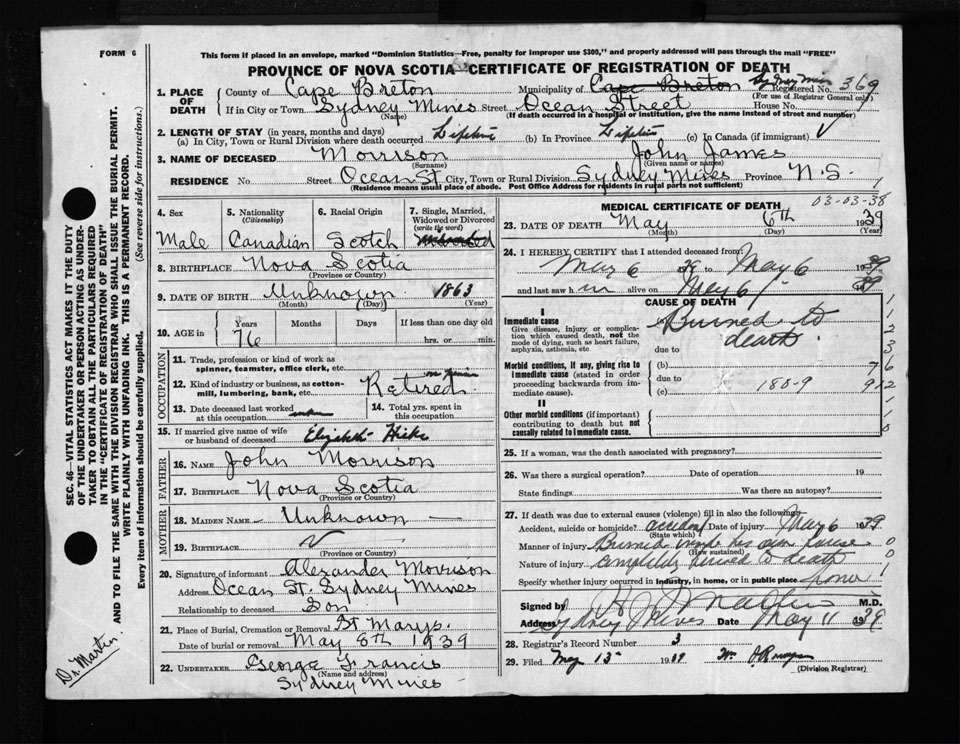 FORM 6
This form if placed in an envelope, marked "Dominion Statistics—Free, penalty for improper use $300," and properly addressed will pass through the mail "FREE"
PROVINCE OF NOVA SCOTIA—CERTIFICATE OF REGISTRATION OF DEATH
SEC. 46—VITAL STATISTICS ACT MAKES IT THE DUTY
OF THE UNDERTAKER OR PERSON ACTING AS UNDER-
TAKER TO OBTAIN ALL THE PARTICULARS REQUIRED
IN THE "CERTIFICATE OF REGISTRATION OF DEATH"
AND TO FILE THE SAME WITH THE DIVISION REGISTRAR WHO SHALL ISSUE THE BURIAL PERMIT.
WRITE PLAINLY WITH UNFADING INK. THIS IS A PERMANENT RECORD.
Every item of information should be carefully supplied. (See reverse side for instructions.)
Dr. Martin
1. PLACE OF DEATH
County of Cape Breton Municipality of Cape Breton Sydney Mines Registered No. 369
(For use of Registrar General only)
If in City or Town Sydney Mines Street Ocean Street House No.
(Name) (If death occurred in a hospital or institution, give the name instead of street and number)
2. LENGTH OF STAY (in years, months and days)
(a) In City, Town or Rural Division where death occurred Lifetime (b) In Province Lifetime (c) In Canada (if immigrant) √
3. NAME OF DECEASED Morrison John James
(Surname) (Given name or names)
RESIDENCE No. Street Ocean St City, Town or Rural Division Sydney Mines Province N.S.
(Residence means usual place of abode. Post Office Address for residents in rural parts not sufficient)
4. Sex Male
5. Nationality (Citizenship) Canadian
6. Racial Origin Scotch
7. Single, Married, Widowed or Divorced (write the word)
8. BIRTHPLACE Nova Scotia
(Province or Country)
9. DATE OF BIRTH Unknown 1863
(Month) (Day) (Year)
10. AGE in Years Months Days If less than one day old
76 hrs. or min.
OCCUPATION
11. Trade, profession or kind of work as spinner, teamster, office clerk, etc.
12. Kind of industry or business, as cotton-mill, lumbering, bank, etc. Retired
13. Date deceased last worked at this occupation
14. Total yrs. spent in this occupation
15. If married give name of wife or husband of deceased Elizabeth Hicks
FATHER
16. NAME John Morrison
17. BIRTHPLACE Nova Scotia
(Province or Country)
MOTHER
18. MAIDEN NAME — Unknown —
19. BIRTHPLACE √
(Province or Country)
20. Signature of informant Alexander Morrison
Address Ocean St. Sydney Mines
Relationship to deceased Son
21. Place of Burial, Cremation or Removal St Marys.
Date of burial or removal May 8th 1939
22. UNDERTAKER George Francis
(Name and address)
Sydney Mines
03-03-38
MEDICAL CERTIFICATE OF DEATH
23. DATE OF DEATH May 6th 1939
(Month) (Day) (Year)
24. I HEREBY CERTIFY that I attended deceased from:
Mar 6 39 to May 6 1939
and last saw him alive on May 6 1939
CAUSE OF DEATH
I
Immediate cause
Give disease, injury or complication which caused death, not the mode of dying, such as heart failure, asphyxia, asthenia, etc.
Burned to death
due to
Morbid conditions, if any, giving rise to immediate cause (stated in order proceeding backwards from immediate cause).
(b)
due to
(c) 180-9
II
Other morbid conditions (if important) contributing to death but not causally related to immediate cause.
1
1
2
3
76
912
1
1
0
25. If a woman, was the death associated with pregnancy?
26. Was there a surgical operation? Date of operation 19
State findings Was there an autopsy?
27. If death was due to external causes (violence) fill in also the following:
Accident, suicide or homicide? accident Date of injury May 6 1939
(State which)
Manner of injury Burned inside his own house 0
(How sustained)
Nature of injury completely burned to death 0
Specify whether injury occurred in industry, in home, or in public place home 1
Signed by M.D.
Address Sydney Mines Date May 11 1939
28. Registrar's Record Number 3
29. Filed May 13 1939
(Division Registrar)